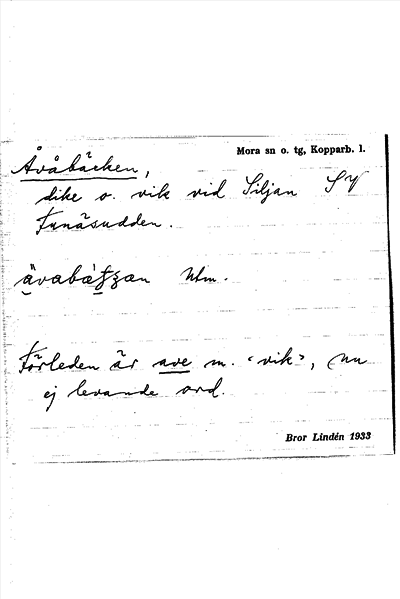 Mora sn o. tg, Kopparb. l.
Åvåbäcken,
dike o. vik vid Siljan SV
Funäsudden.
Utm.
Förleden är ave m. "vik", nu
ej levande ord.
Bror Lindén 1933